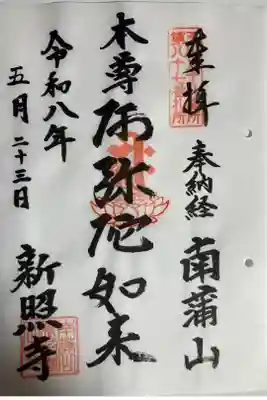 奉拝
奉納経
南蒲山
本尊阿弥陀如来
令和八年
五月二十三日
新照寺